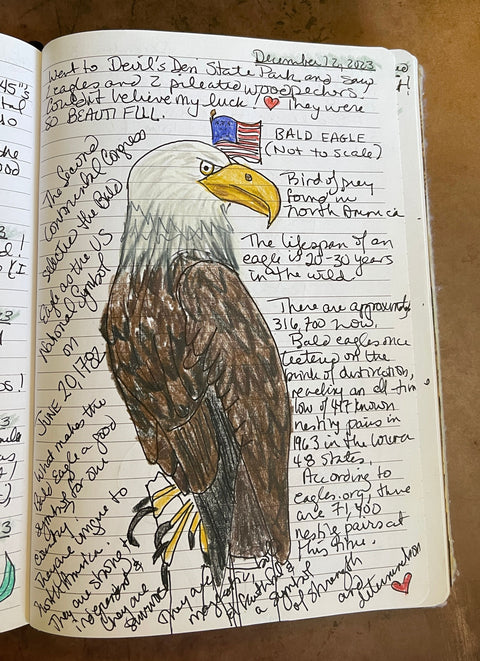 December 12, 2023
Went to Devil's Den State Park and saw
2 eagles and 2 pileated woodpeckers.
Couldn't believe my luck! They were
so BEAUTIFUL.
BALD EAGLE
(Not to scale)
Bird of prey
found in
North America
The lifespan of an
eagle is 20-30 years
in the wild
There are approximately
316,700 now.
Bald eagles once
teetered on the
brink of distinction,
reaching an all-time
low of 417 known
nesting pairs in
1963 in the lower
48 states.
According to
eagles.org, there
are 71,400
nesting pairs at
this time.
The Second
Continental Congress
selected the Bald
Eagle as the US
National Symbol
on
JUNE 20, 1782
What makes the
Bald Eagle a good
symbol for our
country:
They are unique to
North America.
They are strong &
independent &
they are
survivors
They are
majestic,
&
a symbol
of strength
and
determination
45"